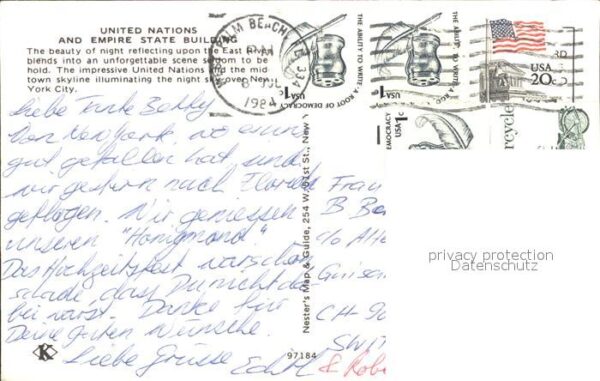 UNITED NATIONS
AND EMPIRE STATE BUILDING
The beauty of night reflecting upon the East River
blends into an unforgettable scene seldom to be
hold. The impressive United Nations and the mid
town skyline illuminating the night sky over New
York City.
Liebe Tante Betty
Von New York, wo es uns
gut gefallen hat, sind
wir gestern nach Florida
geflogen. Wir geniessen
unseren "Honigmond".
Das Hochzeitsfest war schön
schade, dass Du nicht da-
bei warst. Danke für
Deine guten Wünsche.
Liebe Grüsse Edith & Robe
K
97184
Nester's Map & Guide, 254 W. 31st St., New Y
BEACH
FL 334
JUL
1984
USA 1c
THE ABILITY TO WRITE. A ROOT OF DEMOCRACY
USA 1c
THE ABILITY TO WRITE. A ROO
USA
20c
DEMOCRACY
USA 1c
rcycle
Frau
B Be
c/o
CH-90
privacy protection
Datenschutz